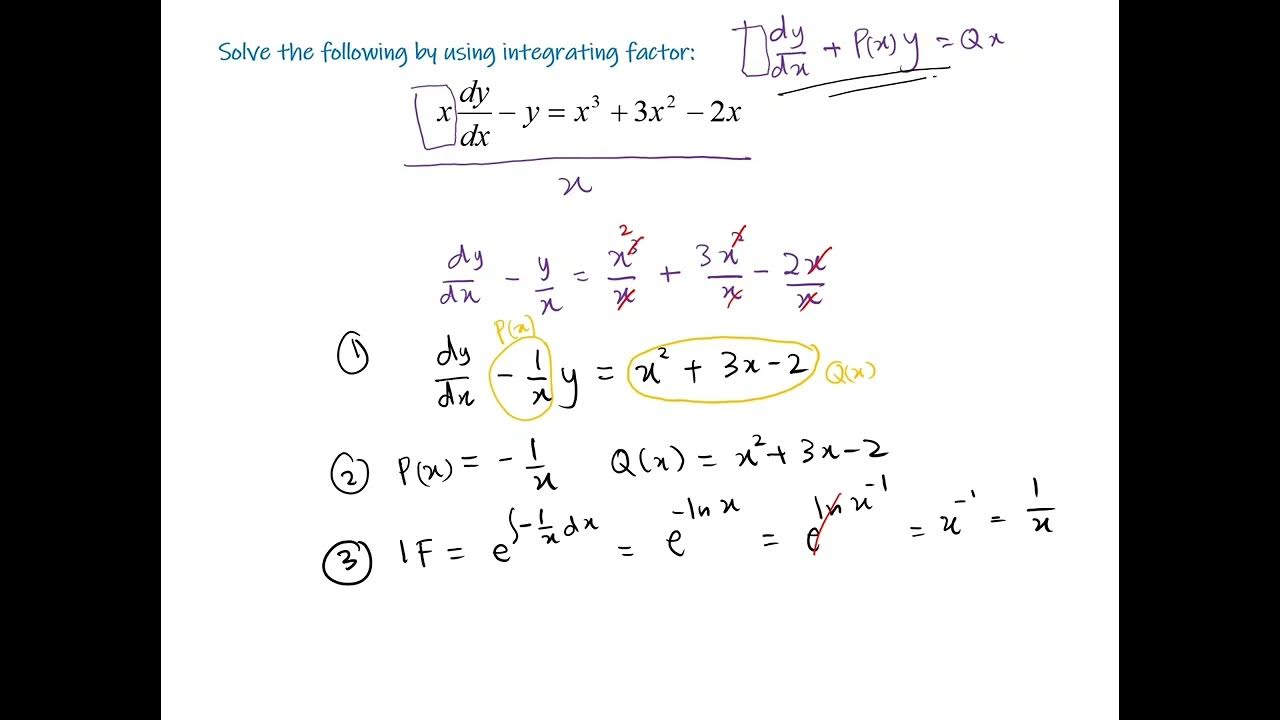 Solve the following by using integrating factor:
dy/dx + P(x) y = Q x
x dy/dx − y = x³ + 3x² − 2x
x
dy/dx − y/x = x³/x + 3x²/x − 2x/x
2
P(x)
① dy/dx − 1/x y = x² + 3x − 2 Q(x)
② P(x) = − 1/x Q(x) = x² + 3x − 2
③ IF = e^∫−1/x dx = e^−ln x = e^ln x⁻¹ = x⁻¹ = 1/x